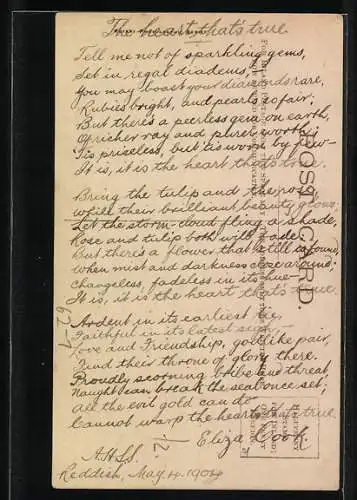 The heart that's true
Tell me not of sparkling gems,
Set in regal diadems,
You may boast your diamonds rare,
Rubies bright, and pearls so fair;
But there's a peerless gem on earth,
Of richer ray and purer worth;
'Tis priceless, but 'tis worn by few—
It is, it is the heart that's true.
Bring the tulip and the rose,
while their brilliant beauty glows;
Let the storm-cloud fling a shade,
Rose and tulip both will fade;
But there's a flower that still is found,
when mist and darkness close around;
Changeless, fadeless in its hue—
It is, it is the heart that's true.
Ardent in its earliest tie,
Faithful in its latest sigh,—
Love and Friendship, godlike pair,
Find their throne of glory there.
Proudly scorning bribe and threat,
Naught can break the seal once set;
All the evil gold can do
Cannot warp the heart that's true.
Eliza Cook.
A.H.S.
Reddish, May 4. 1904
POST CARD.